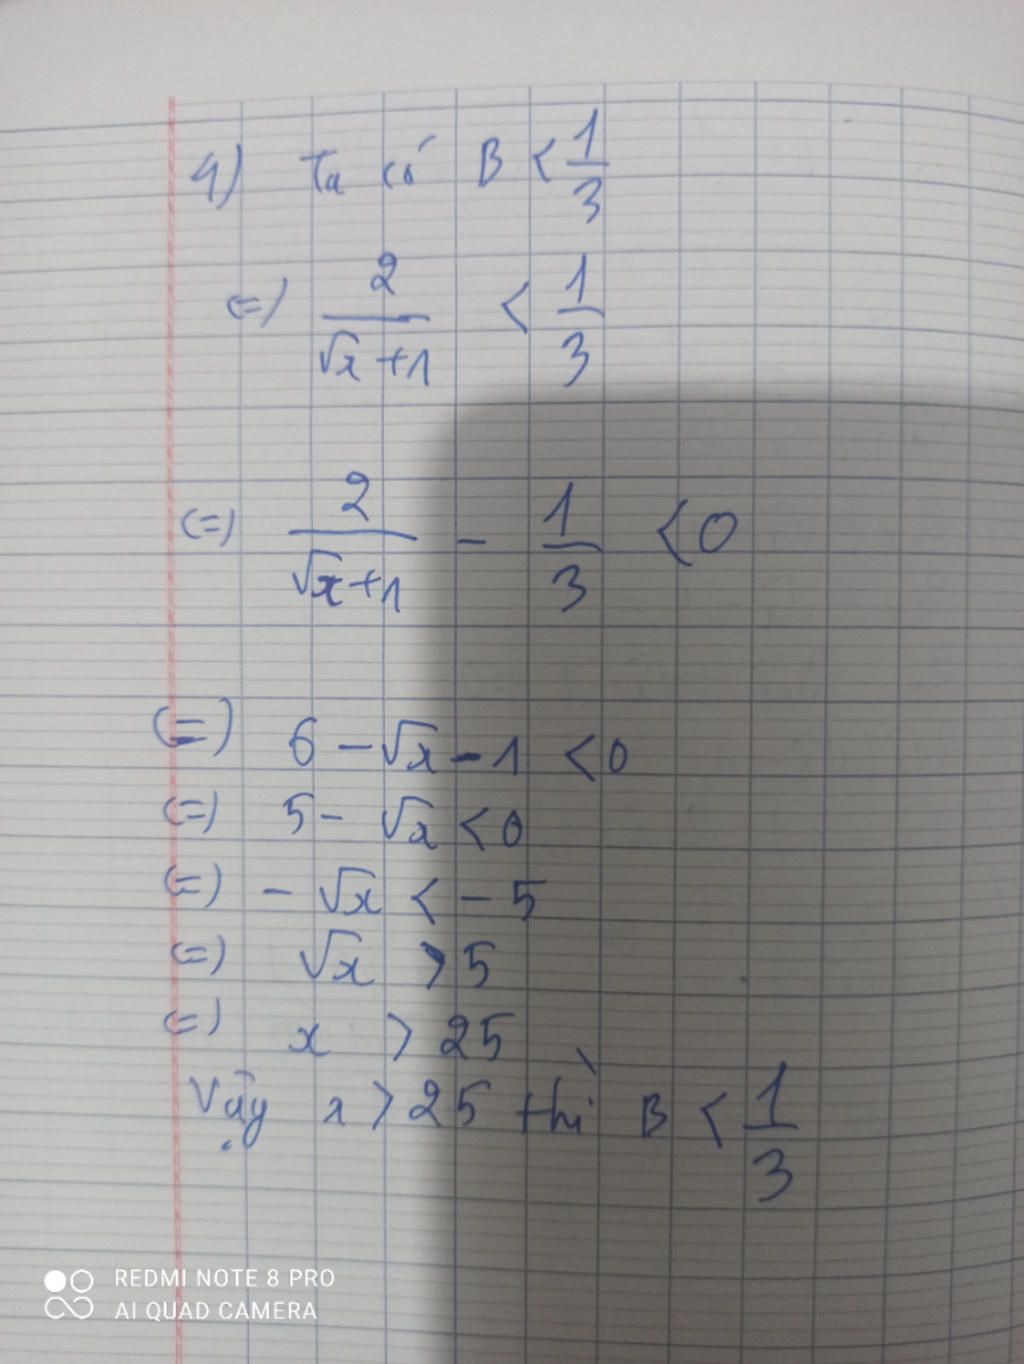 4) Ta có B < 1/3
(=) 2/(√x+1) < 1/3
(=) 2/(√x+1) - 1/3 < 0
(=) 6 - √x - 1 < 0
(=) 5 - √x < 0
(=) - √x < - 5
(=) √x > 5
(=) x > 25
Vậy x > 25 thì B < 1/3
REDMI NOTE 8 PRO
AI QUAD CAMERA